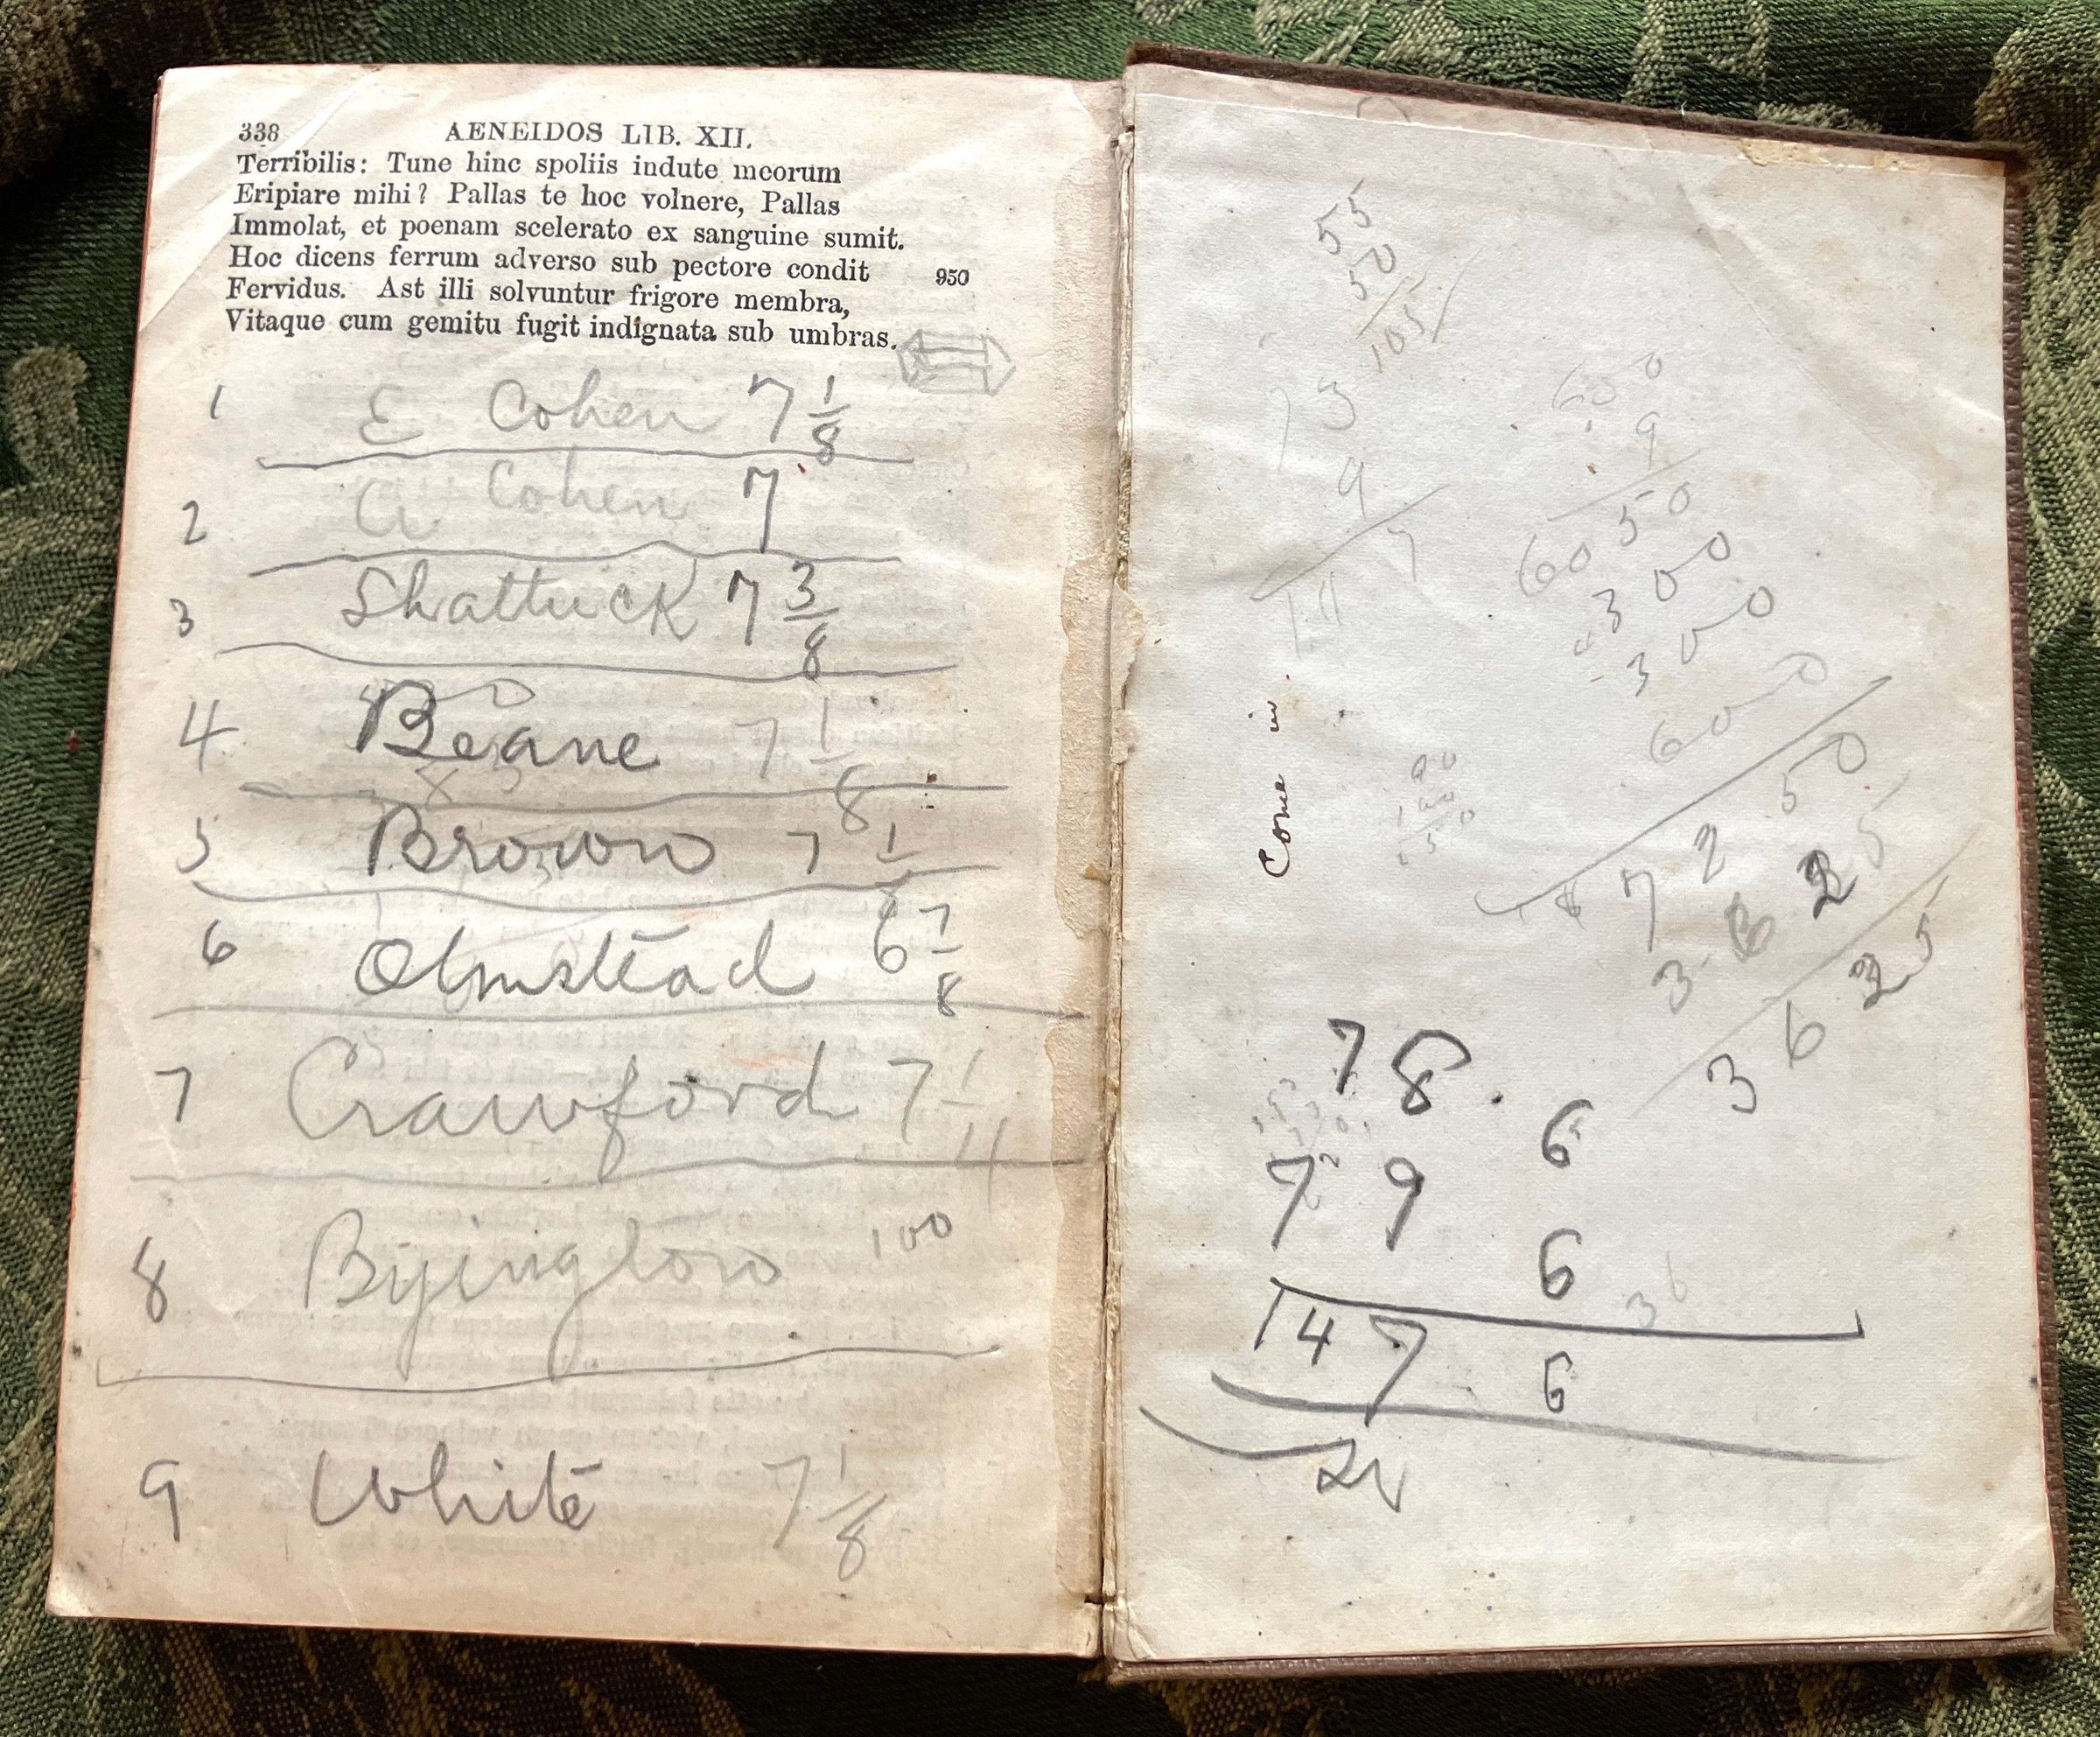 338 AENEIDOS LIB. XII.
Terribilis: Tune hinc spoliis indute meorum
Eripiare mihi? Pallas te hoc volnere, Pallas
Immolat, et poenam scelerato ex sanguine sumit.
Hoc dicens ferrum adverso sub pectore condit 950
Fervidus. Ast illi solvuntur frigore membra,
Vitaque cum gemitu fugit indignata sub umbras.
1 E Cohen 7 1/8
2 A Cohen 7
3 Shattuck 7 3/8
4 Beane 7 1/8
5 Brown 7 1/8
6 Olmstead 6 7/8
7 Crawford 7 1/4
8 Byington 100
9 White 7 1/8
55
50
105
13
9
117
600
9
50
60
300
300
600
7250
3625
Come in
78.
6
79
6
36
147
6